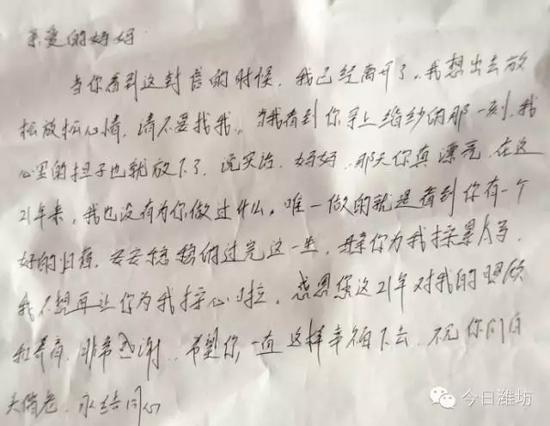 亲爱的妈妈
当你看到这封信的时候，我已经离开了，我想出去放
松放松心情，请不要找我。当我看到你穿上婚纱的那一刻，我
心里的担子也就放下了，说实话，妈妈，那天你真漂亮，在这
21年来，我也没有为你做过什么。唯一做的就是看到你有一个
好的归宿，安安稳稳的过完这一生，你为我操
我不想再让你为我操心啦，感恩您这21年对我的照顾
和养育，非常感谢，希望你一直这样幸福下去，祝你们白
头偕老，永结同心
今日潍坊